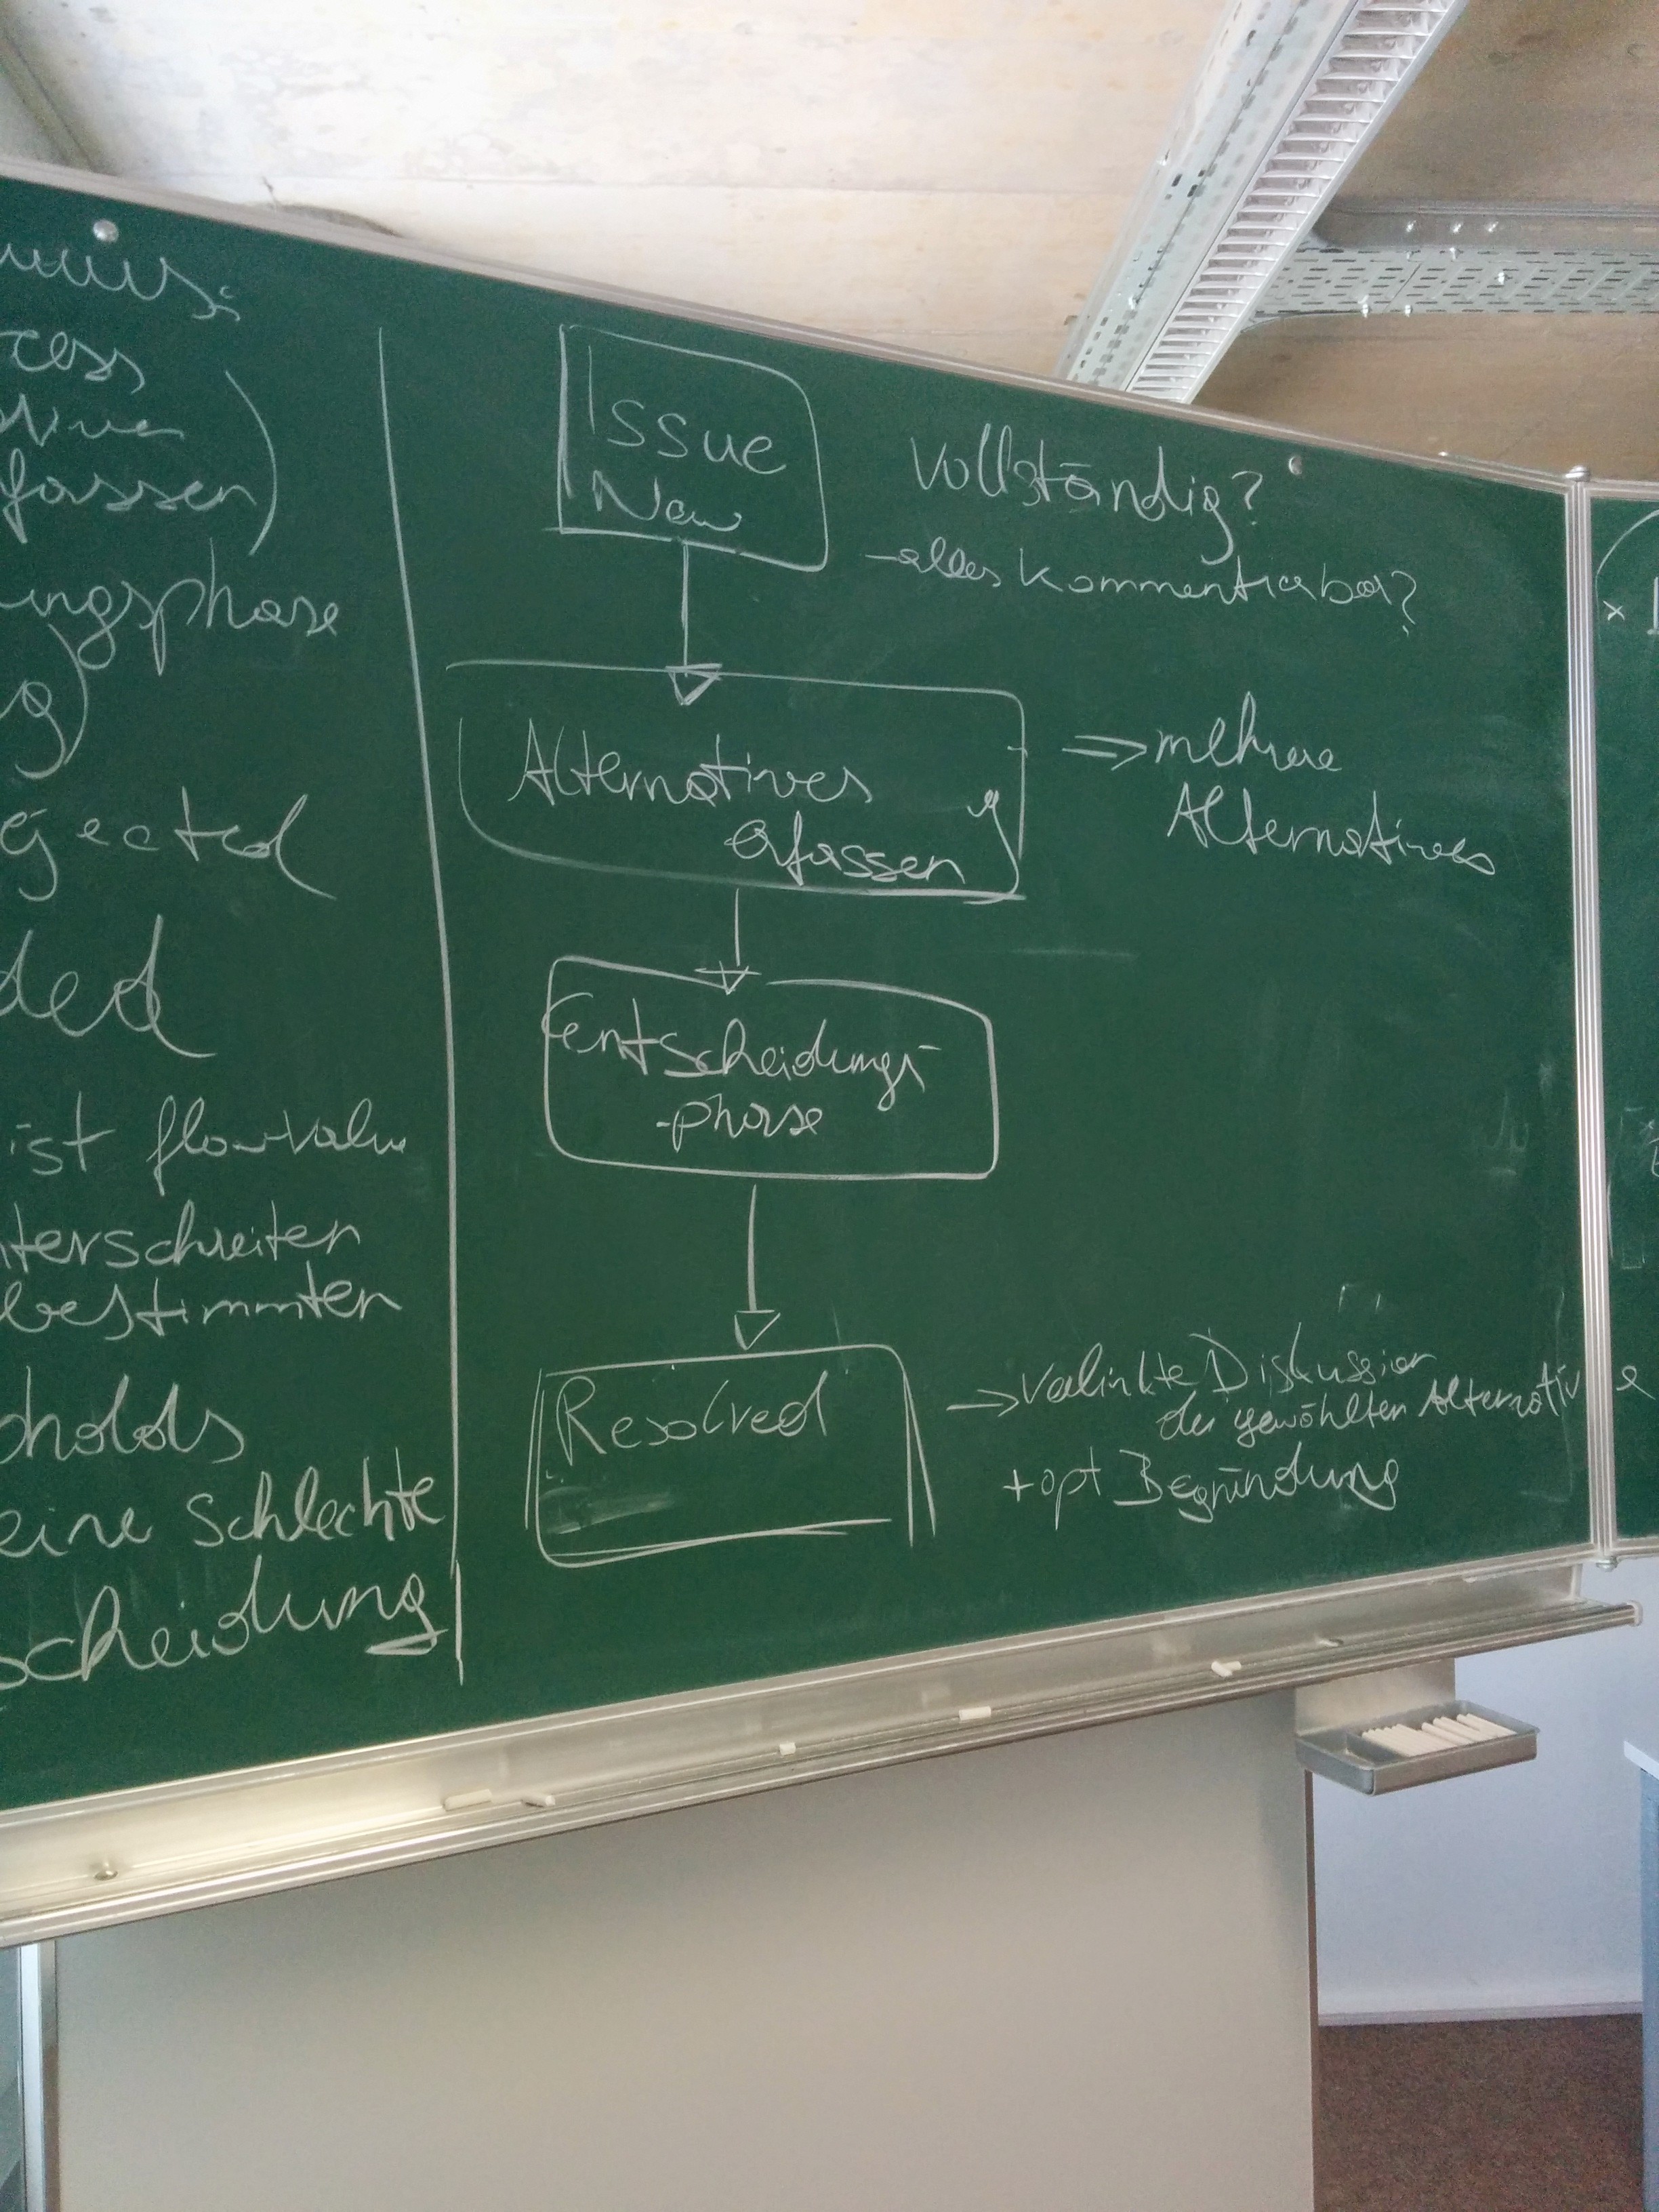 ngsphase
jected
ded
ist flowvalue
terschreiten
bestimmten
holds
eine schlechte
scheidung
Issue
New
Vollständig?
- alles kommentierbar?
Alternatives
erfassen
=> mehrere
Alternatives
Entscheidungs-
-phase
Resolved
-> verlinkte Diskussion
der gewählten Alternative
+ opt Begründung